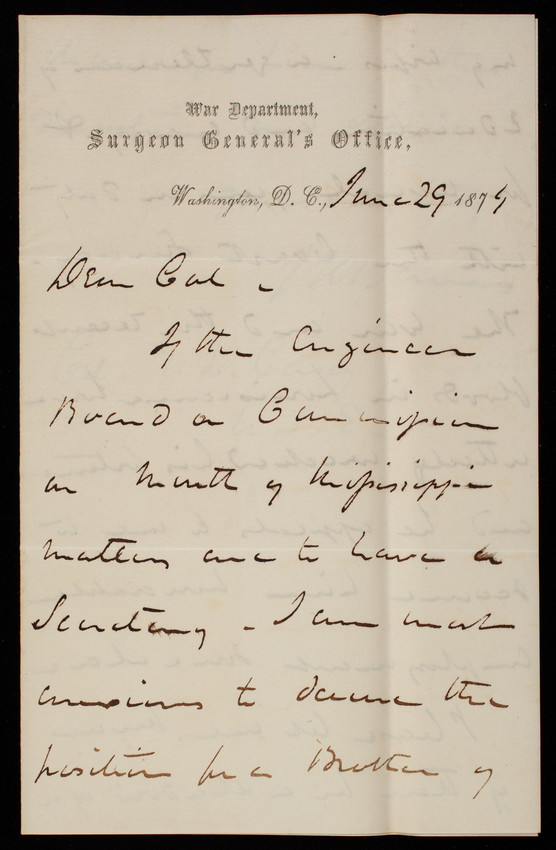 War Department,
Surgeon General's Office,
Washington, D. C., June 29 1874
Dear Col -
If the Engineer
Board or Commission
on Mouth of Mississippi
matters are to have a
Secretary - I am most
anxious to secure the
position for a Brother of